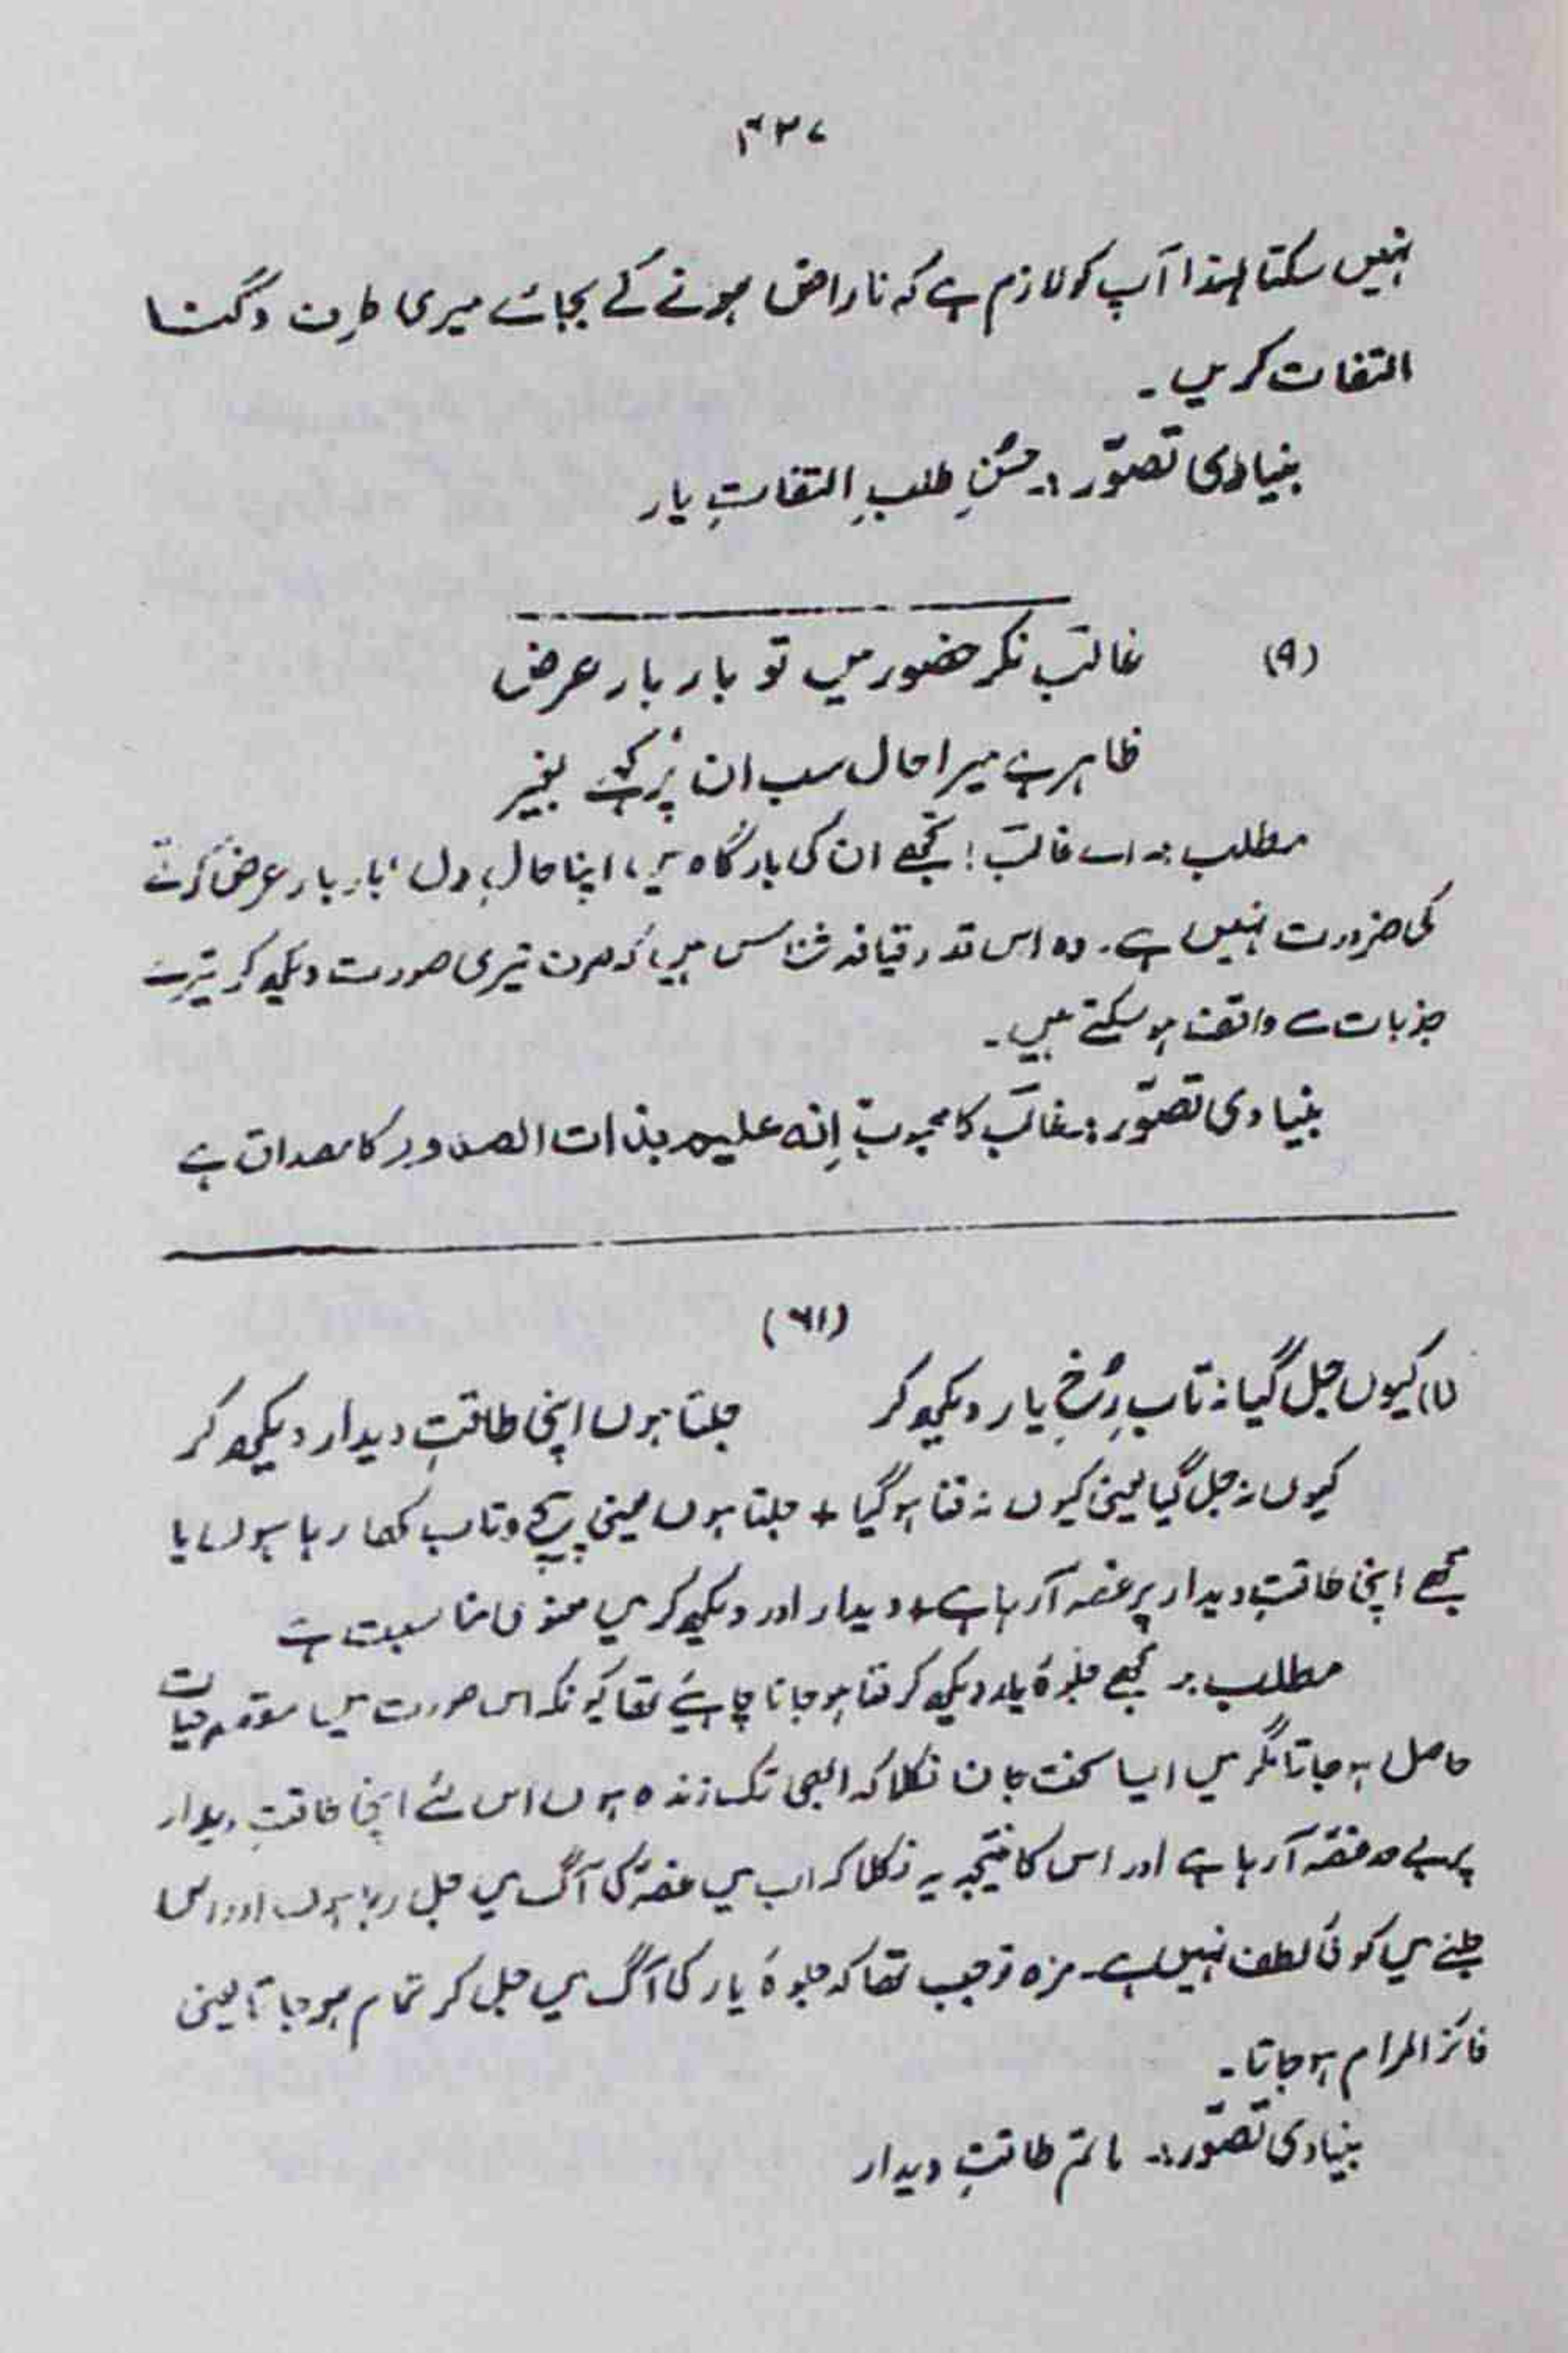 ۴۳۷
نہیں سکتا لہٰذا آپ کو لازم ہے کہ ناراض ہونے کے بجائے میری طرف دگنا
التفات کریں۔
بنیادی تصوّر :۔ حسُنِ طلبِ التفاتِ یار
(۹)
غالبؔ نکر حضور میں تو بار بار عرض
ظاہر ہے میرا حال سب ان پُر کہے بغیر
مطلب :۔ اے غالبؔ! تجھے ان کی بارگاہ میں، اپنا حالِ دل، بار بار عرض کرنے
کی ضرورت نہیں ہے۔ وہ اس قدر قیافہ شناس ہیں کہ صرف تیری صورت دیکھ کر تیرے
جذبات سے واقف ہو سکتے ہیں۔
بنیادی تصوّر :۔ غالبؔ کا محبوب اِنہ علیم بذات الصدور کا مصداق ہے
(۶۱)
(۱) کیوں جل گیا نہ تابِ رُخِ یار دیکھ کر
جلتا ہوں اپنی طاقتِ دیدار دیکھ کر
کیوں نہ جل گیا یعنی کیوں نہ فنا ہو گیا + جلتا ہوں یعنی پیچ و تاب کھا رہا ہوں یا
مجھے اپنی طاقتِ دیدار پر غصہ آ رہا ہے + دیدار اور دیکھ کر میں معنوی مناسبت ہے
مطلب :۔ مجھے جلوۂ یار دیکھ کر فنا ہو جانا چاہیئے تھا کیونکہ اس صورت میں مقصدِ حیات
حاصل ہو جاتا مگر میں ایسا سخت جان نکلا کہ ابھی تک زندہ ہوں اس لئے اپنی طاقتِ دیدار
پر بے حد غصّہ آ رہا ہے اور اس کا نتیجہ یہ نکلا کہ اب میں غصّہ کی آگ میں جل رہا ہوں اور اس
جلنے میں کوئی لطف نہیں ہے۔ مزہ تو جب تھا کہ جلوۂ یار کی آگ میں جل کر تمام ہو جاتا یعنی
فائز المرام ہو جاتا۔
بنیادی تصوّر :۔ ماتمِ طاقتِ دیدار